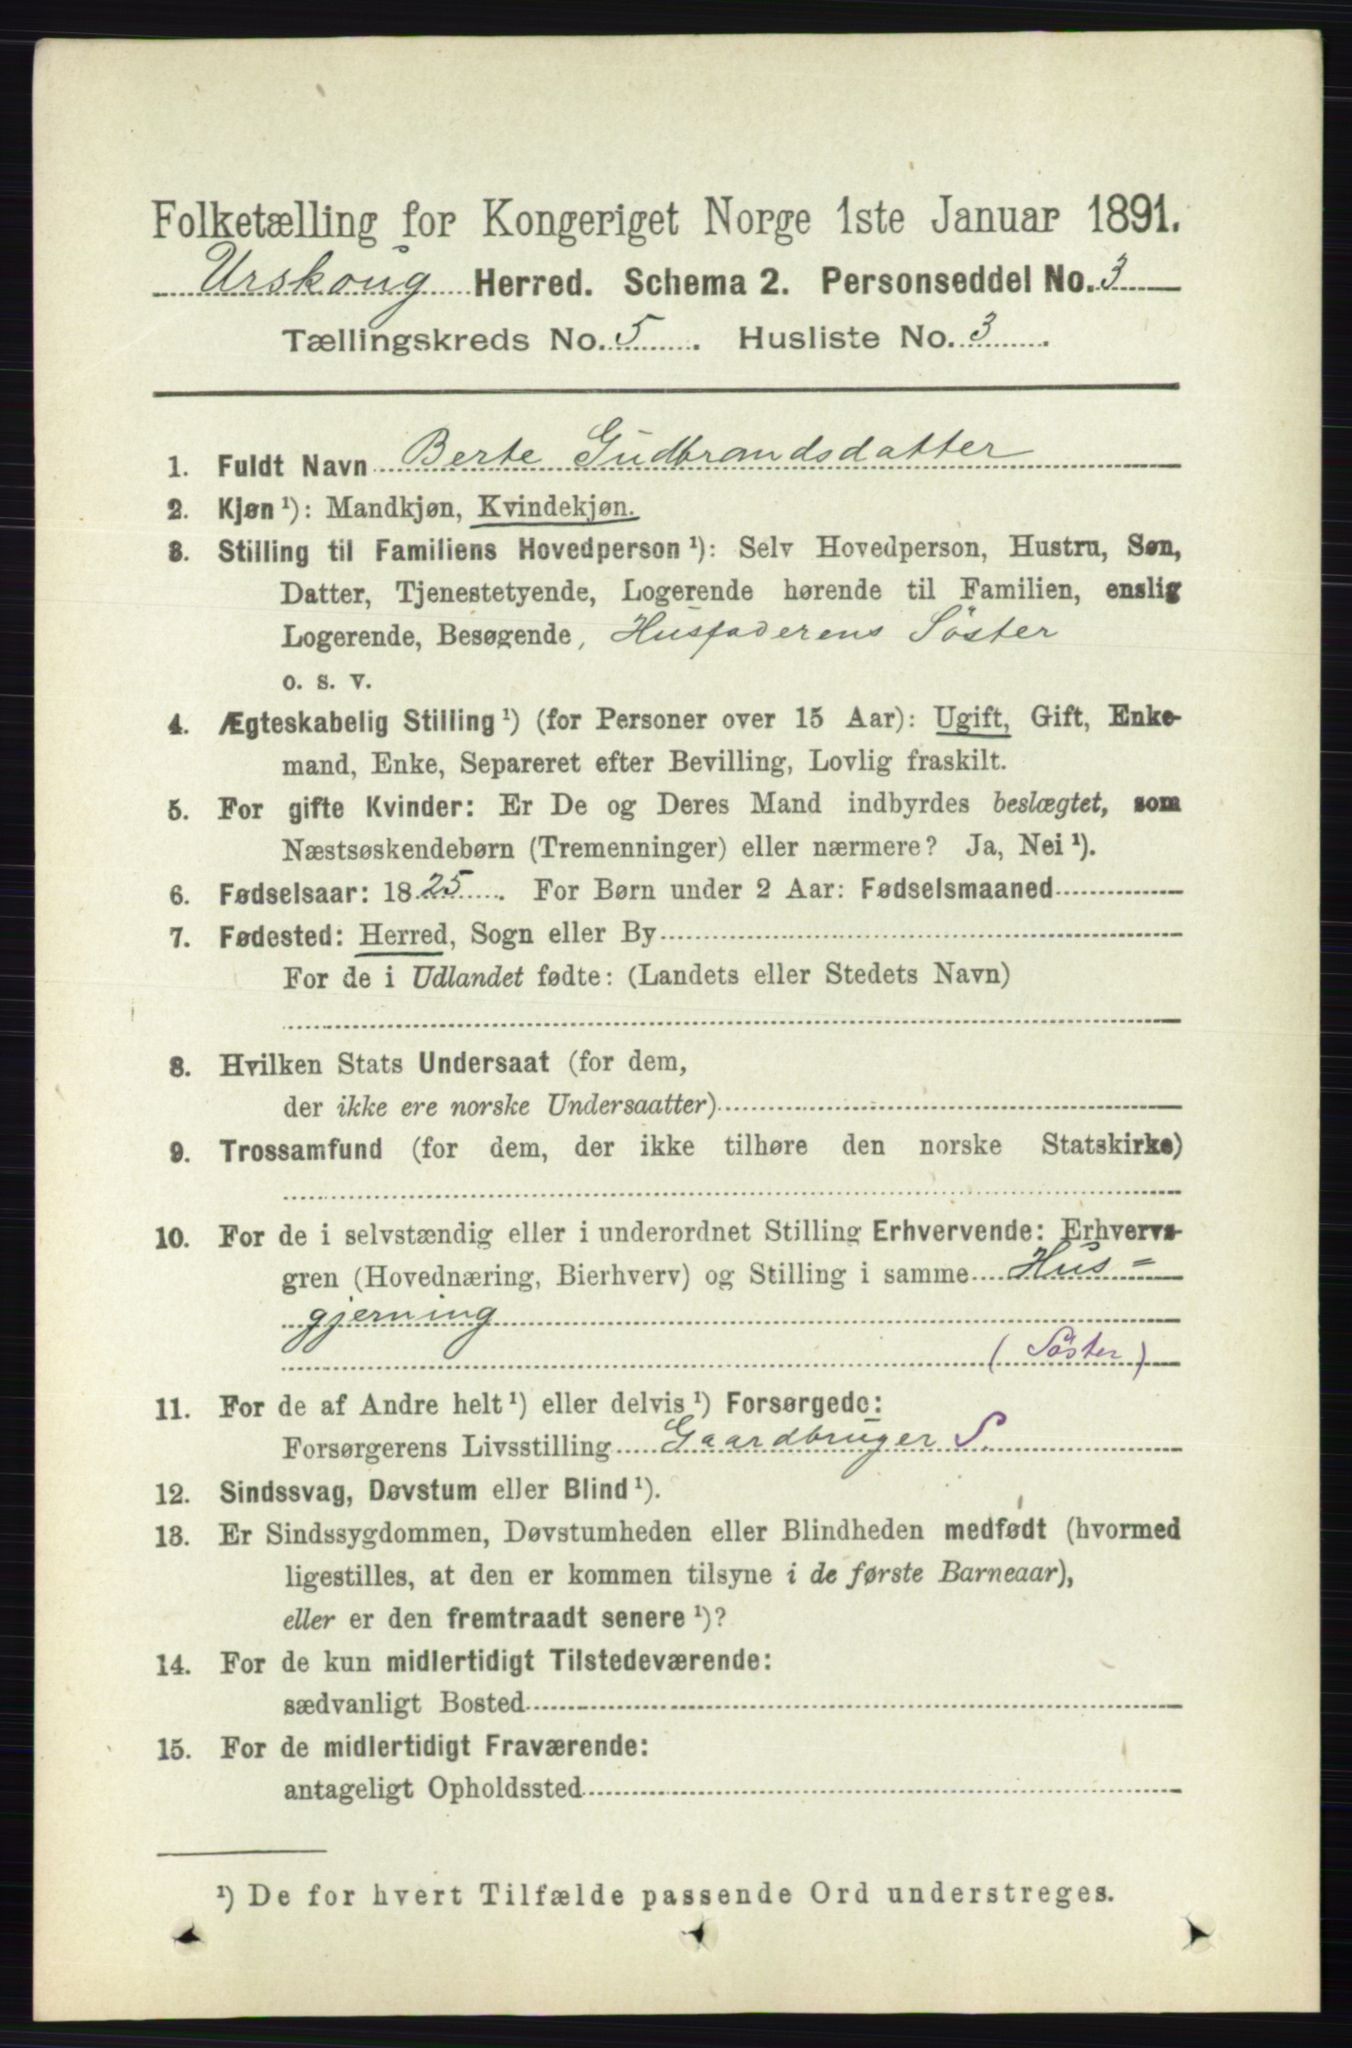 Folketælling for Kongeriget Norge 1ste Januar 1891.
Urskoug Herred. Schema 2. Personseddel No. 3
Tællingskreds No. 5. Husliste No. 3.
1. Fuldt Navn Berte Gudbrandsdatter
2. Kjøn ¹): Mandkjøn, Kvindekjøn.
3. Stilling til Familiens Hovedperson ¹): Selv Hovedperson, Hustru, Søn,
Datter, Tjenestetyende, Logerende hørende til Familien, enslig
Logerende, Besøgende, Husfaderens Söster
o. s. v.
4. Ægteskabelig Stilling ¹) (for Personer over 15 Aar): Ugift, Gift, Enke-
mand, Enke, Separeret efter Bevilling, Lovlig fraskilt.
5. For gifte Kvinder: Er De og Deres Mand indbyrdes beslægtet, som
Næstsøskendebørn (Tremenninger) eller nærmere? Ja, Nei ¹).
6. Fødselsaar: 1825. For Børn under 2 Aar: Fødselsmaaned
7. Fødested: Herred, Sogn eller By
For de i Udlandet fødte: (Landets eller Stedets Navn)
8. Hvilken Stats Undersaat (for dem,
der ikke ere norske Undersaatter)
9. Trossamfund (for dem, der ikke tilhøre den norske Statskirke)
10. For de i selvstændig eller i underordnet Stilling Erhvervende: Erhvervs-
gren (Hovednæring, Bierhverv) og Stilling i samme Hus-
gjerning
(Söster)
11. For de af Andre helt ¹) eller delvis ¹) Forsørgede:
Forsørgerens Livsstilling Gaardbruger S.
12. Sindssvag, Døvstum eller Blind ¹).
13. Er Sindssygdommen, Døvstumheden eller Blindheden medfødt (hvormed
ligestilles, at den er kommen tilsyne i de første Barneaar),
eller er den fremtraadt senere ¹)?
14. For de kun midlertidigt Tilstedeværende:
sædvanligt Bosted
15. For de midlertidigt Fraværende:
antageligt Opholdssted
¹) De for hvert Tilfælde passende Ord understreges.